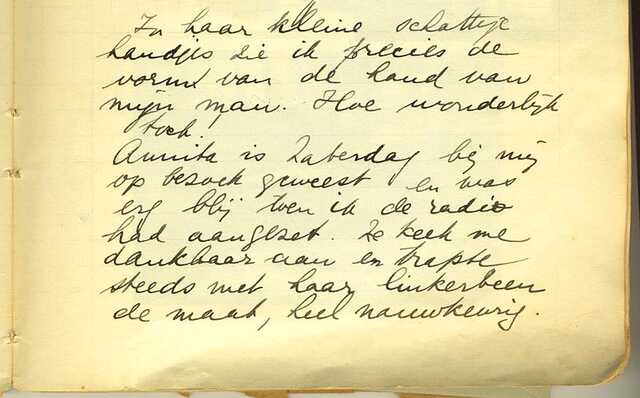 In haar kleine schattige
handjes zie ik precies de
vorm van de hand van
mijn man. Hoe wonderlijk
toch.
Annita is Zaterdag bij mij
op bezoek geweest en was
erg blij toen ik de radio
had aangezet. Ze keek me
dankbaar aan en trapte
steeds met haar linkerbeen
de maat, heel nauwkeurig.